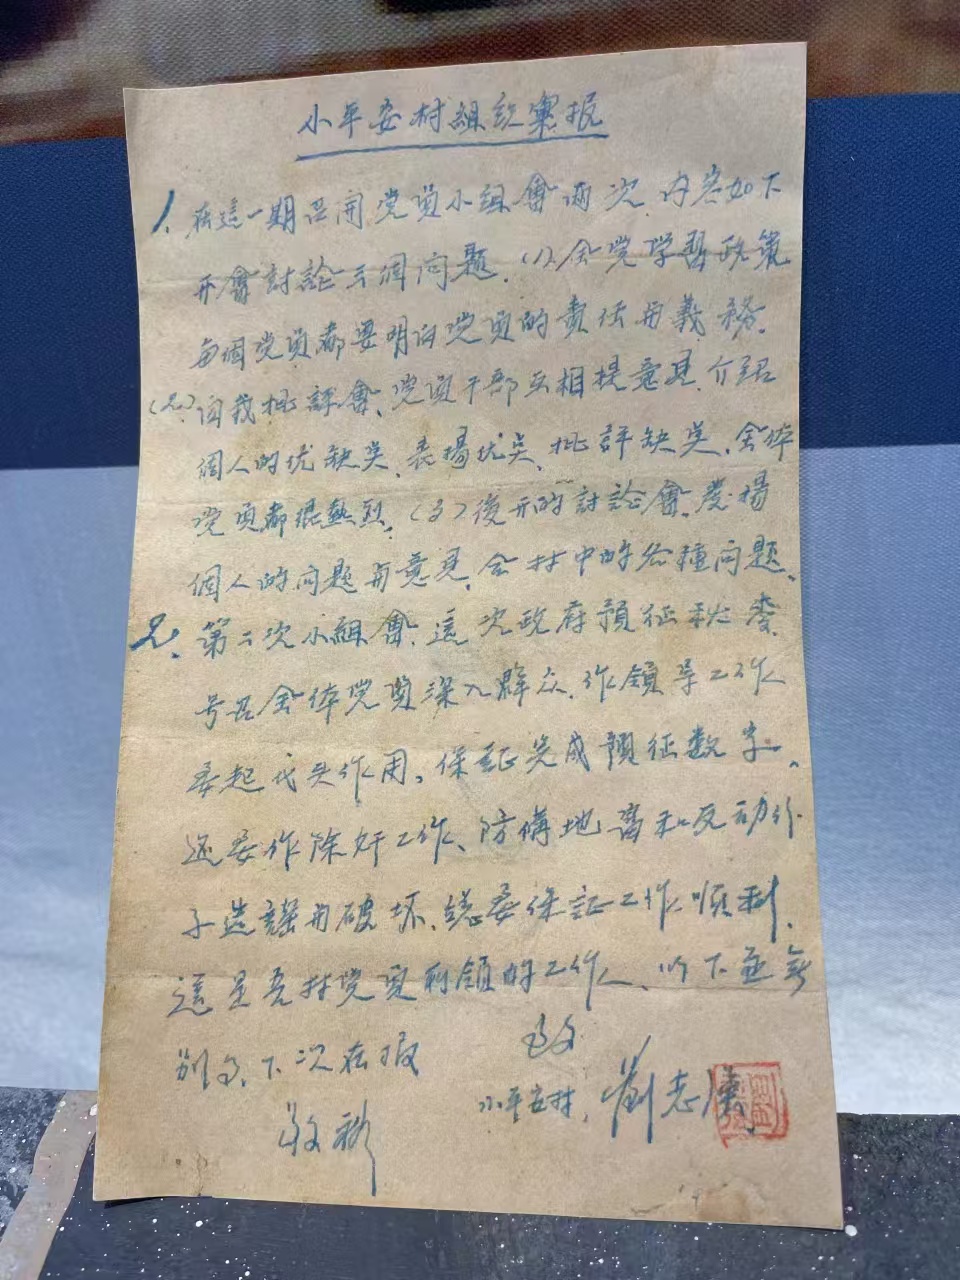 小平安村組织彙报
1. 在這一期召開党員小組會兩次，内容如下
开會討論三個问題．(1)、全党学習政策
每個党員都要明白党員的責任与義務．
(2) 自我批評會、党員干部互相提意見、介绍
個人的优缺点、表揚优点、批評缺点，全体
党員都很熱烈．(3)後开的討論會、发揚
個人的问题与意見，全村中的各種问题、
2. 第二次小組會，這次政府預征秋麥
号召全体党員深入群众，作領导工作
要起代头作用。保証完成預征数字。
还要作除奸工作、防備地富和反动分
子造謠与破坏、總要保証工作順利，
這是吾村党員所領的工作，以下並無
别的、下次在报 此致
敬礼 小平安村，劉志